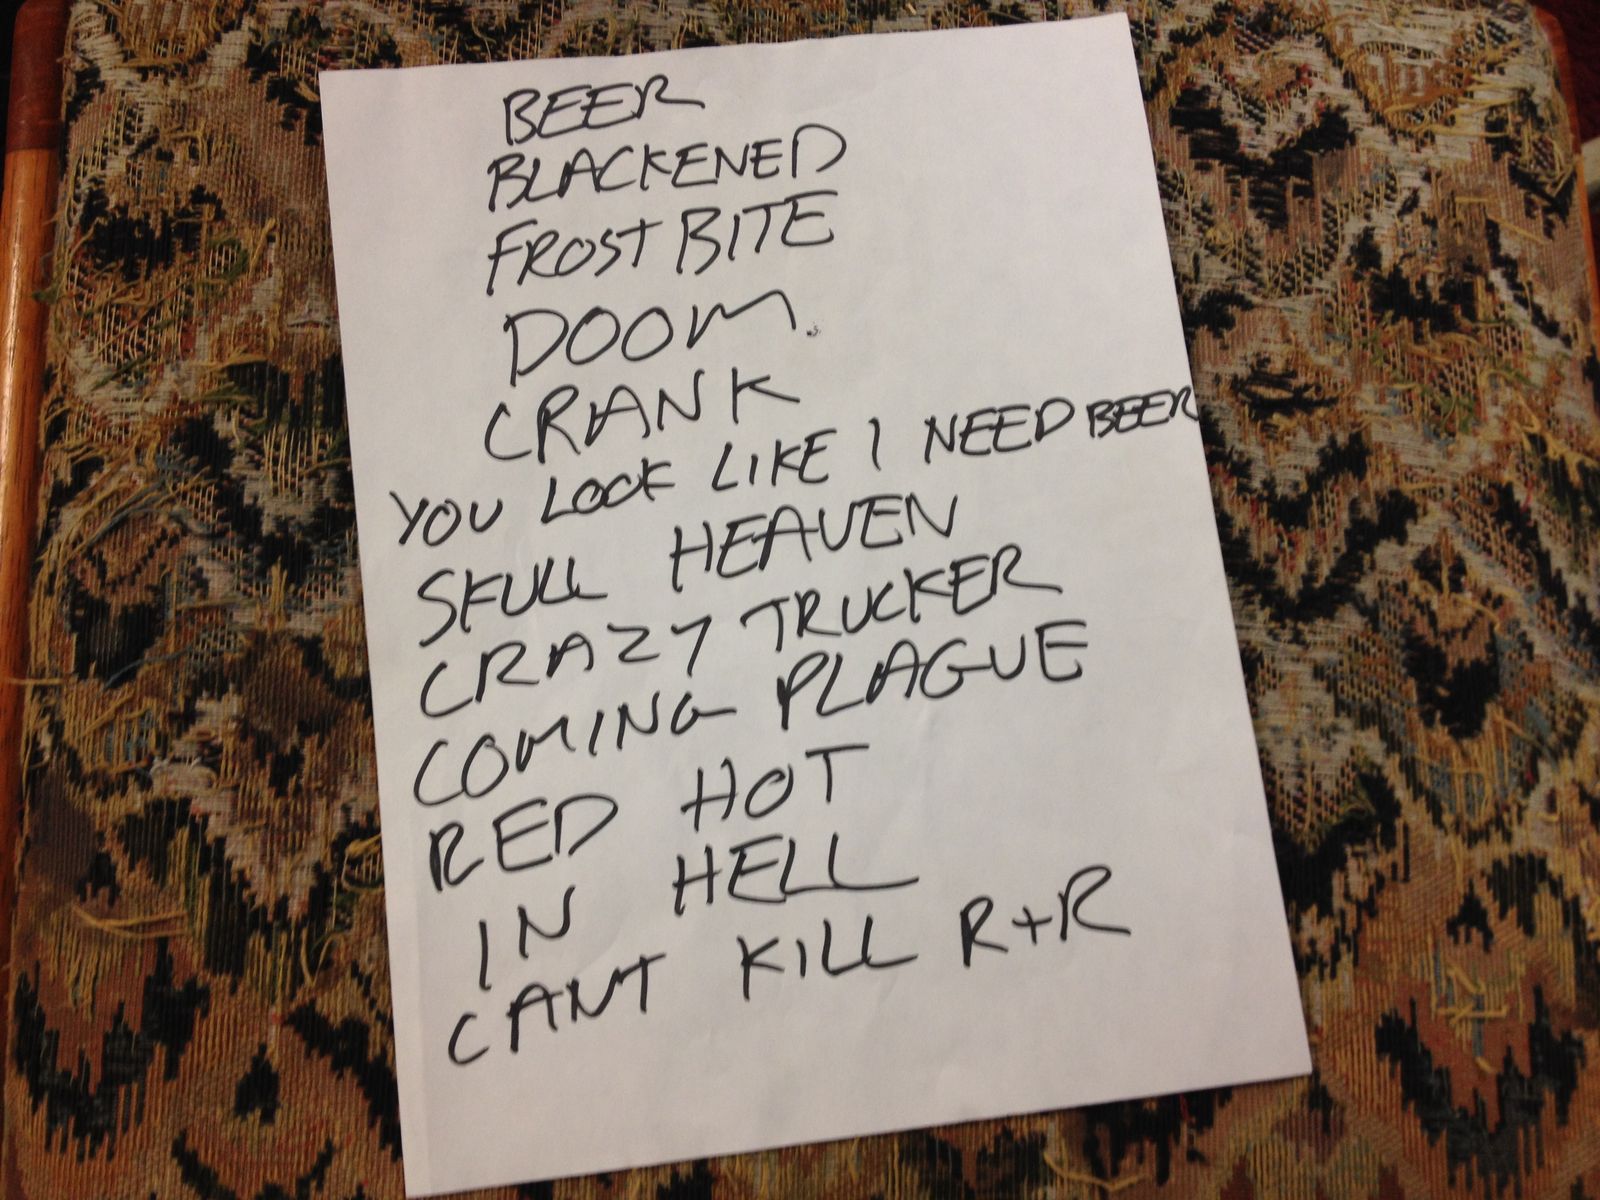 BEER
BLACKENED
FROST BITE
DOOM.
CRANK
YOU LOOK LIKE I NEED BEER
SKULL HEAVEN
CRAZY TRUCKER
COMING PLAGUE
RED HOT
IN HELL
CANT KILL R+R